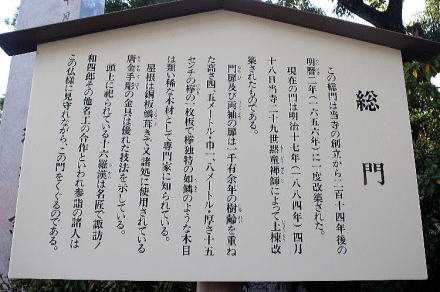 総門
この総門は当寺の創立から二百十四年後の
明暦二年、(一六五六年)に一度改築された。
現在の門は明治十七年(一八八四年)四月
十八日当寺二十九世黙童禅師によって上棟改
築されたものである。
門扉及び両袖の扉は一千有余年の樹齢を重ね
た高さ四、五メートル・巾一、八メートル・厚さ十五
センチの欅の一枚板で欅独特の如鱗のような木目
は類い稀な木材として専門家に知られている。
屋根は銅板鱗葺きで又諸処に使用されている
唐金手彫の金具は優れた技法を示している。
頭上に祀られている十六羅漢は名匠で諏訪ノ
和四郎その他名工の合作といわれ参詣の諸人は
この仏様に見守れながら、この門をくぐるのである。